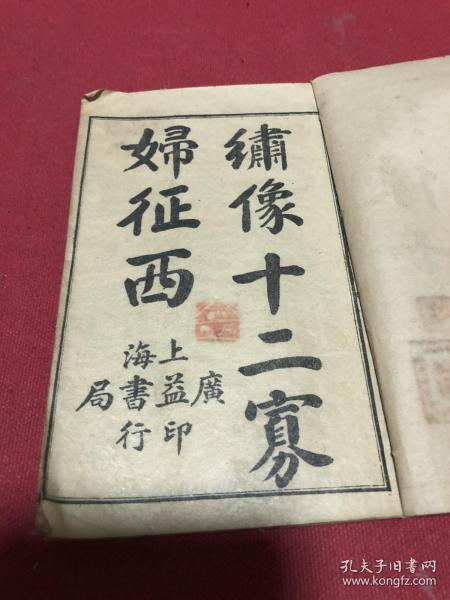 繡像十二寡
婦征西
上海
廣益書局
印行
孔夫子旧书网
www.kongfz.com